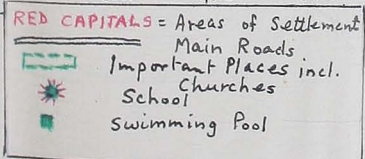 RED CAPITALS = Areas of Settlement
Main Roads
Important Places incl.
Churches
School
Swimming Pool